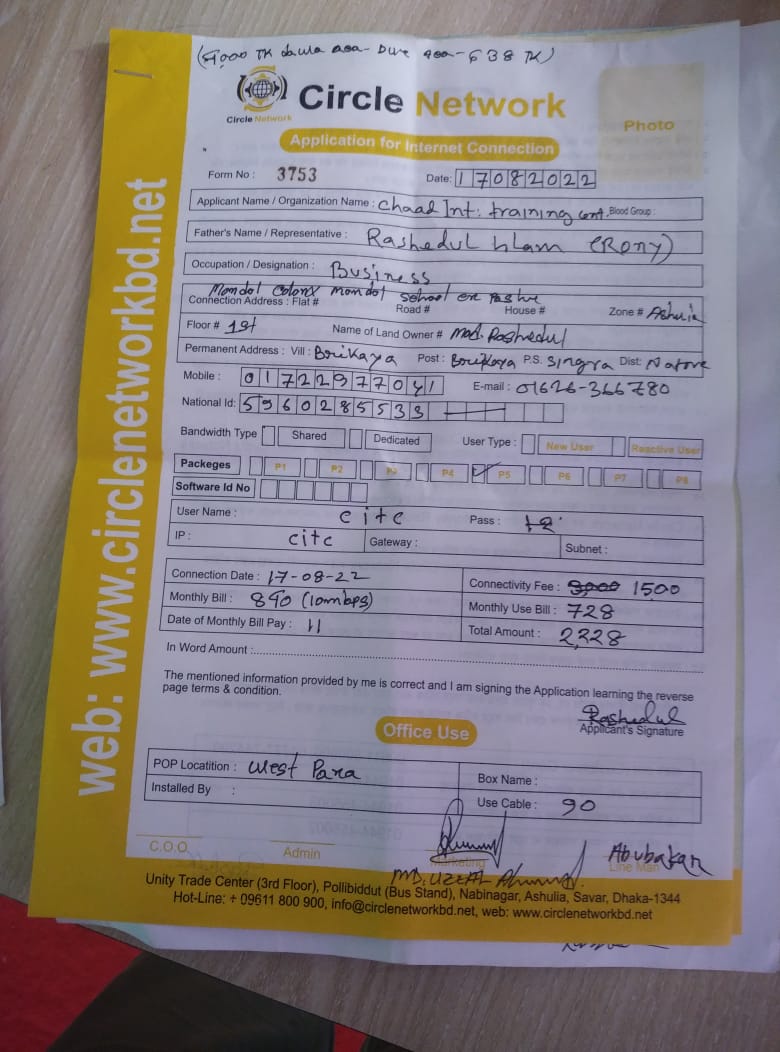 TK
638 TK)
Circle Network
Circle Network
Photo
Application for Internet Connection
Form No : 3753
Date: 17082022
Applicant Name / Organization Name : Chaad Int: training cent. Blood Group :
Father's Name / Representative : Rashedul Islam (Rony)
Occupation / Designation : Business
Mondol Colony mondol school er pashe
Connection Address : Flat # Road # House # Zone # Ashulia
Floor # 1st Name of Land Owner # Md. Rashedul
Permanent Address : Vill : Borikaya Post : Borikaya P.S. Singra Dist: Natore
Mobile : 01722977041 E-mail : 01626-366780
National Id: 5960285533
Bandwidth Type Shared Dedicated User Type : New User Reactive User
Packeges P1 P2 P3 P4 P5 P6 P7 P8
Software Id No
User Name : citc Pass : 12
IP : citc Gateway : Subnet :
Connection Date : 17-08-22 Connectivity Fee : 3000 1500
Monthly Bill : 840 (10mbps) Monthly Use Bill : 728
Date of Monthly Bill Pay : 11 Total Amount : 2,228
In Word Amount :
The mentioned information provided by me is correct and I am signing the Application learning the reverse
page terms & condition.
Rashedul
Applicant's Signature
Office Use
POP Locatition : West Para Box Name :
Installed By : Use Cable : 90
Abubakar
C.O.O. Admin Marketing Line Man
MD. UZZAL Ahmmed.
Unity Trade Center (3rd Floor), Pollibiddut (Bus Stand), Nabinagar, Ashulia, Savar, Dhaka-1344
Hot-Line: + 09611 800 900, info@circlenetworkbd.net, web: www.circlenetworkbd.net
web: www.circlenetworkbd.net